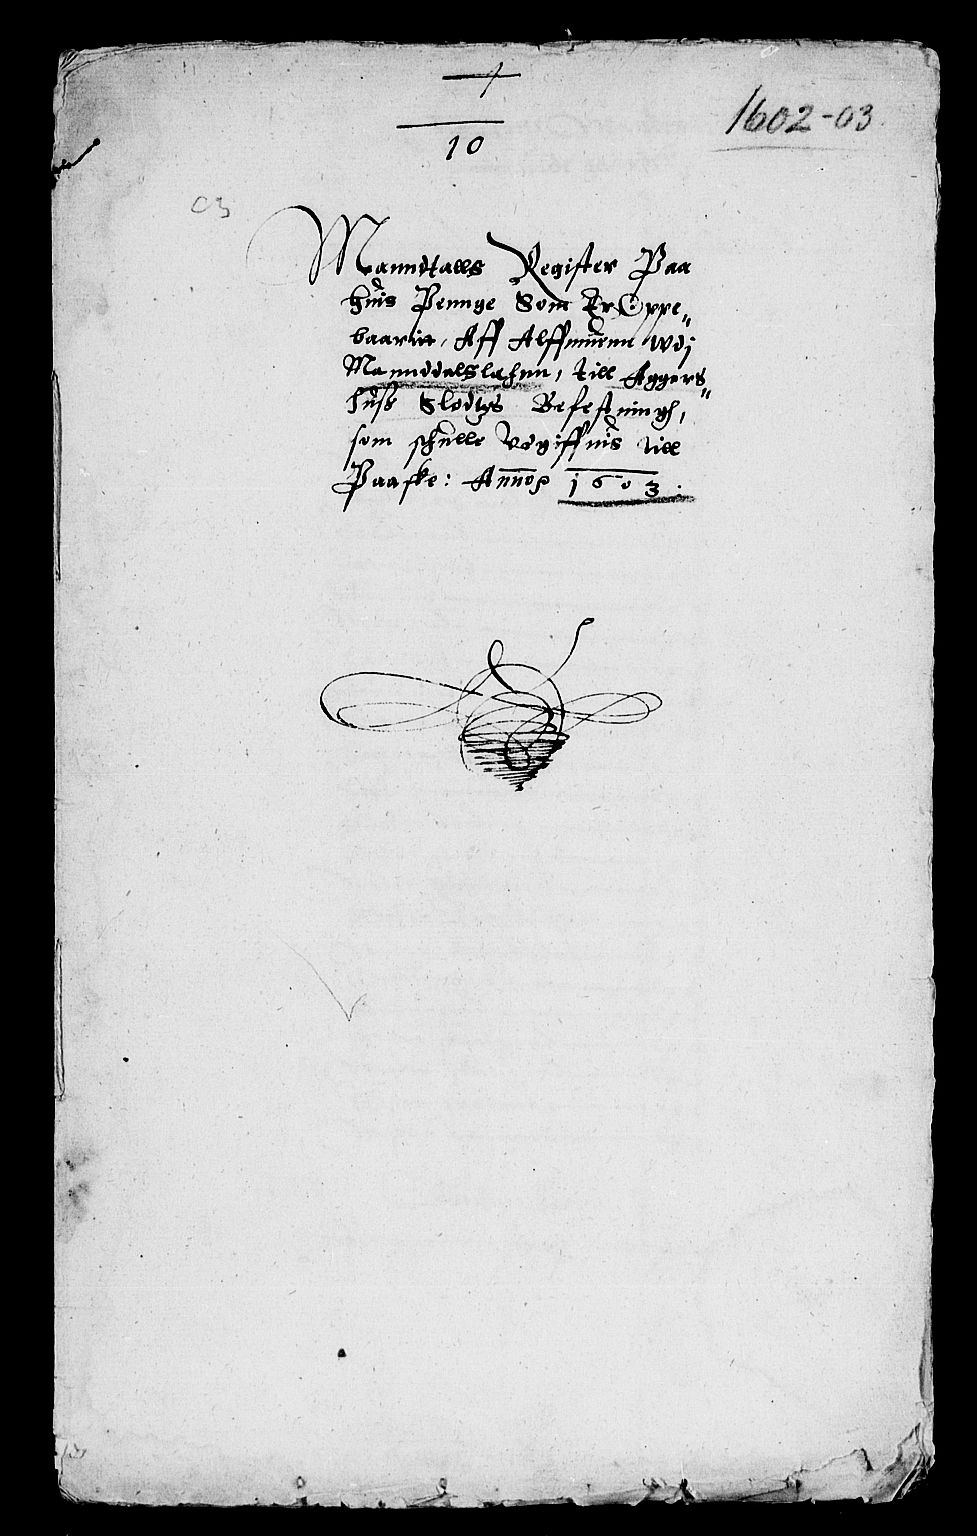 1
10
1602-03
C3
Manndtalls Register Paa
huis Pennge Som Er Oppe„
baaritt, Aff Alffmuenn udj
Manddalslehnn, till Aggers„
huss Slodtzs Befestningh,
som schulle Udgiffuis till
Paaske: Anno 1603.